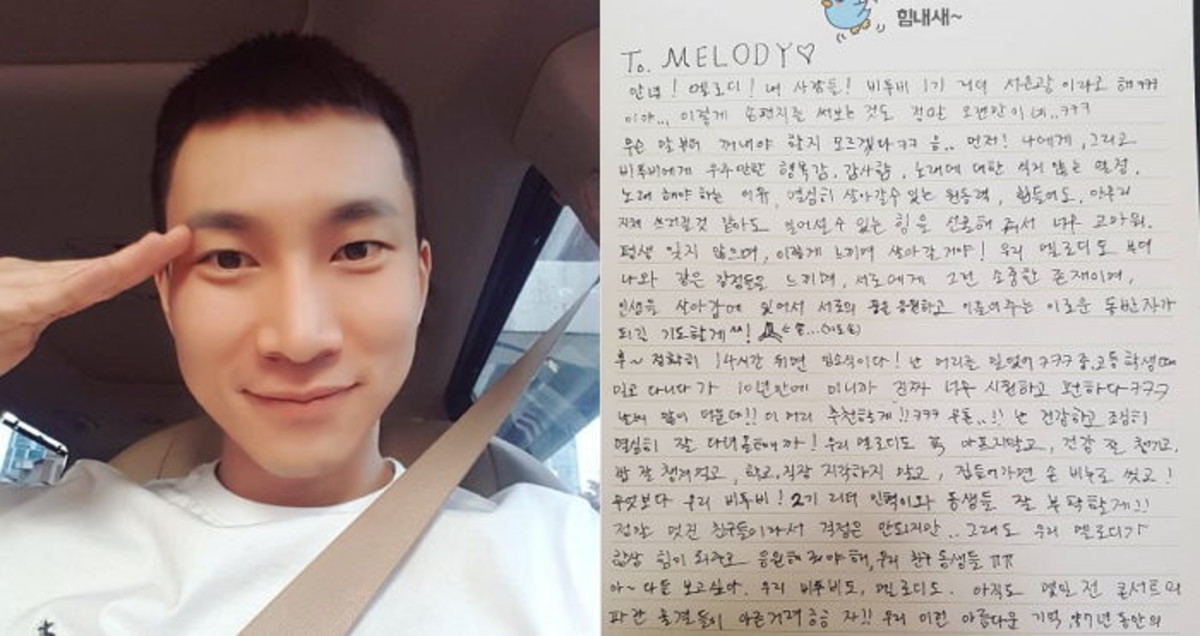 힘내새~
To. MELODY♡
안녕! 멜로디! 내 사람들! 비투비 1기 리더 서은광 이라고 해ㅋㅋ
이야... 이렇게 손편지를 써보는 것도 정말 오랜만이네..ㅋㅋㅋ
무슨 말부터 꺼내야 할지 모르겠다ㅋㅋ 음.. 먼저! 나에게, 그리고
비투비에게 우주만한 행복감, 감사함, 노래에 대한 식지 않는 열정,
노래 해야 하는 이유, 열심히 살아갈수 있는 원동력, 힘들어도, 아무리
지쳐 쓰러질것 같아도 일어설 수 있는 힘을 선물해 줘서 너무 고마워.
평생 잊지 않으며, 이렇게 느끼며 살아갈거야! 우리 멜로디도 부디
나와 같은 감정들을 느끼며, 서로에게 그런 소중한 존재이며,
인생을 살아감에 있어서 서로의 꿈을 응원하고 이끌어주는 이로운 동반자가
되길 기도할게^^!
후~ 정확히 14시간 뒤면 입소식이다! 난 머리를 밀었어ㅋㅋㅋ 중,고등학생때
밀고 다니다가 10년만에 미니까 진짜 너무 시원하고 편하다ㅋㅋㅋ
날씨 많이 더운데!! 이 머리 추천할게!!ㅋㅋㅋ 무튼..!! 난 건강하고 조심히
열심히 잘 다녀올테니까! 우리 멜로디도 꼭 아프지말고, 건강 잘 챙기고,
밥 잘 챙겨먹고, 학교,직장 지각하지 말고, 집들어가면 손 비누로 씻고!
무엇보다 우리 비투비! 2기 리더 민혁이와 동생들 잘 부탁할게!!
정말 멋진 친구들이라서 걱정은 안되지만.. 그래도 우리 멜로디가
항상 힘이 되주고 응원해 줘야해, 우리 친구 동생들 ㅠㅠ
아~ 다들 보고싶다. 우리 비투비도, 멜로디도. 아직도 몇일 전 콘서트의
파란 물결들이 아른거려 흐흐 자!! 우리 이런 아름다운 기억, 약7년 동안의